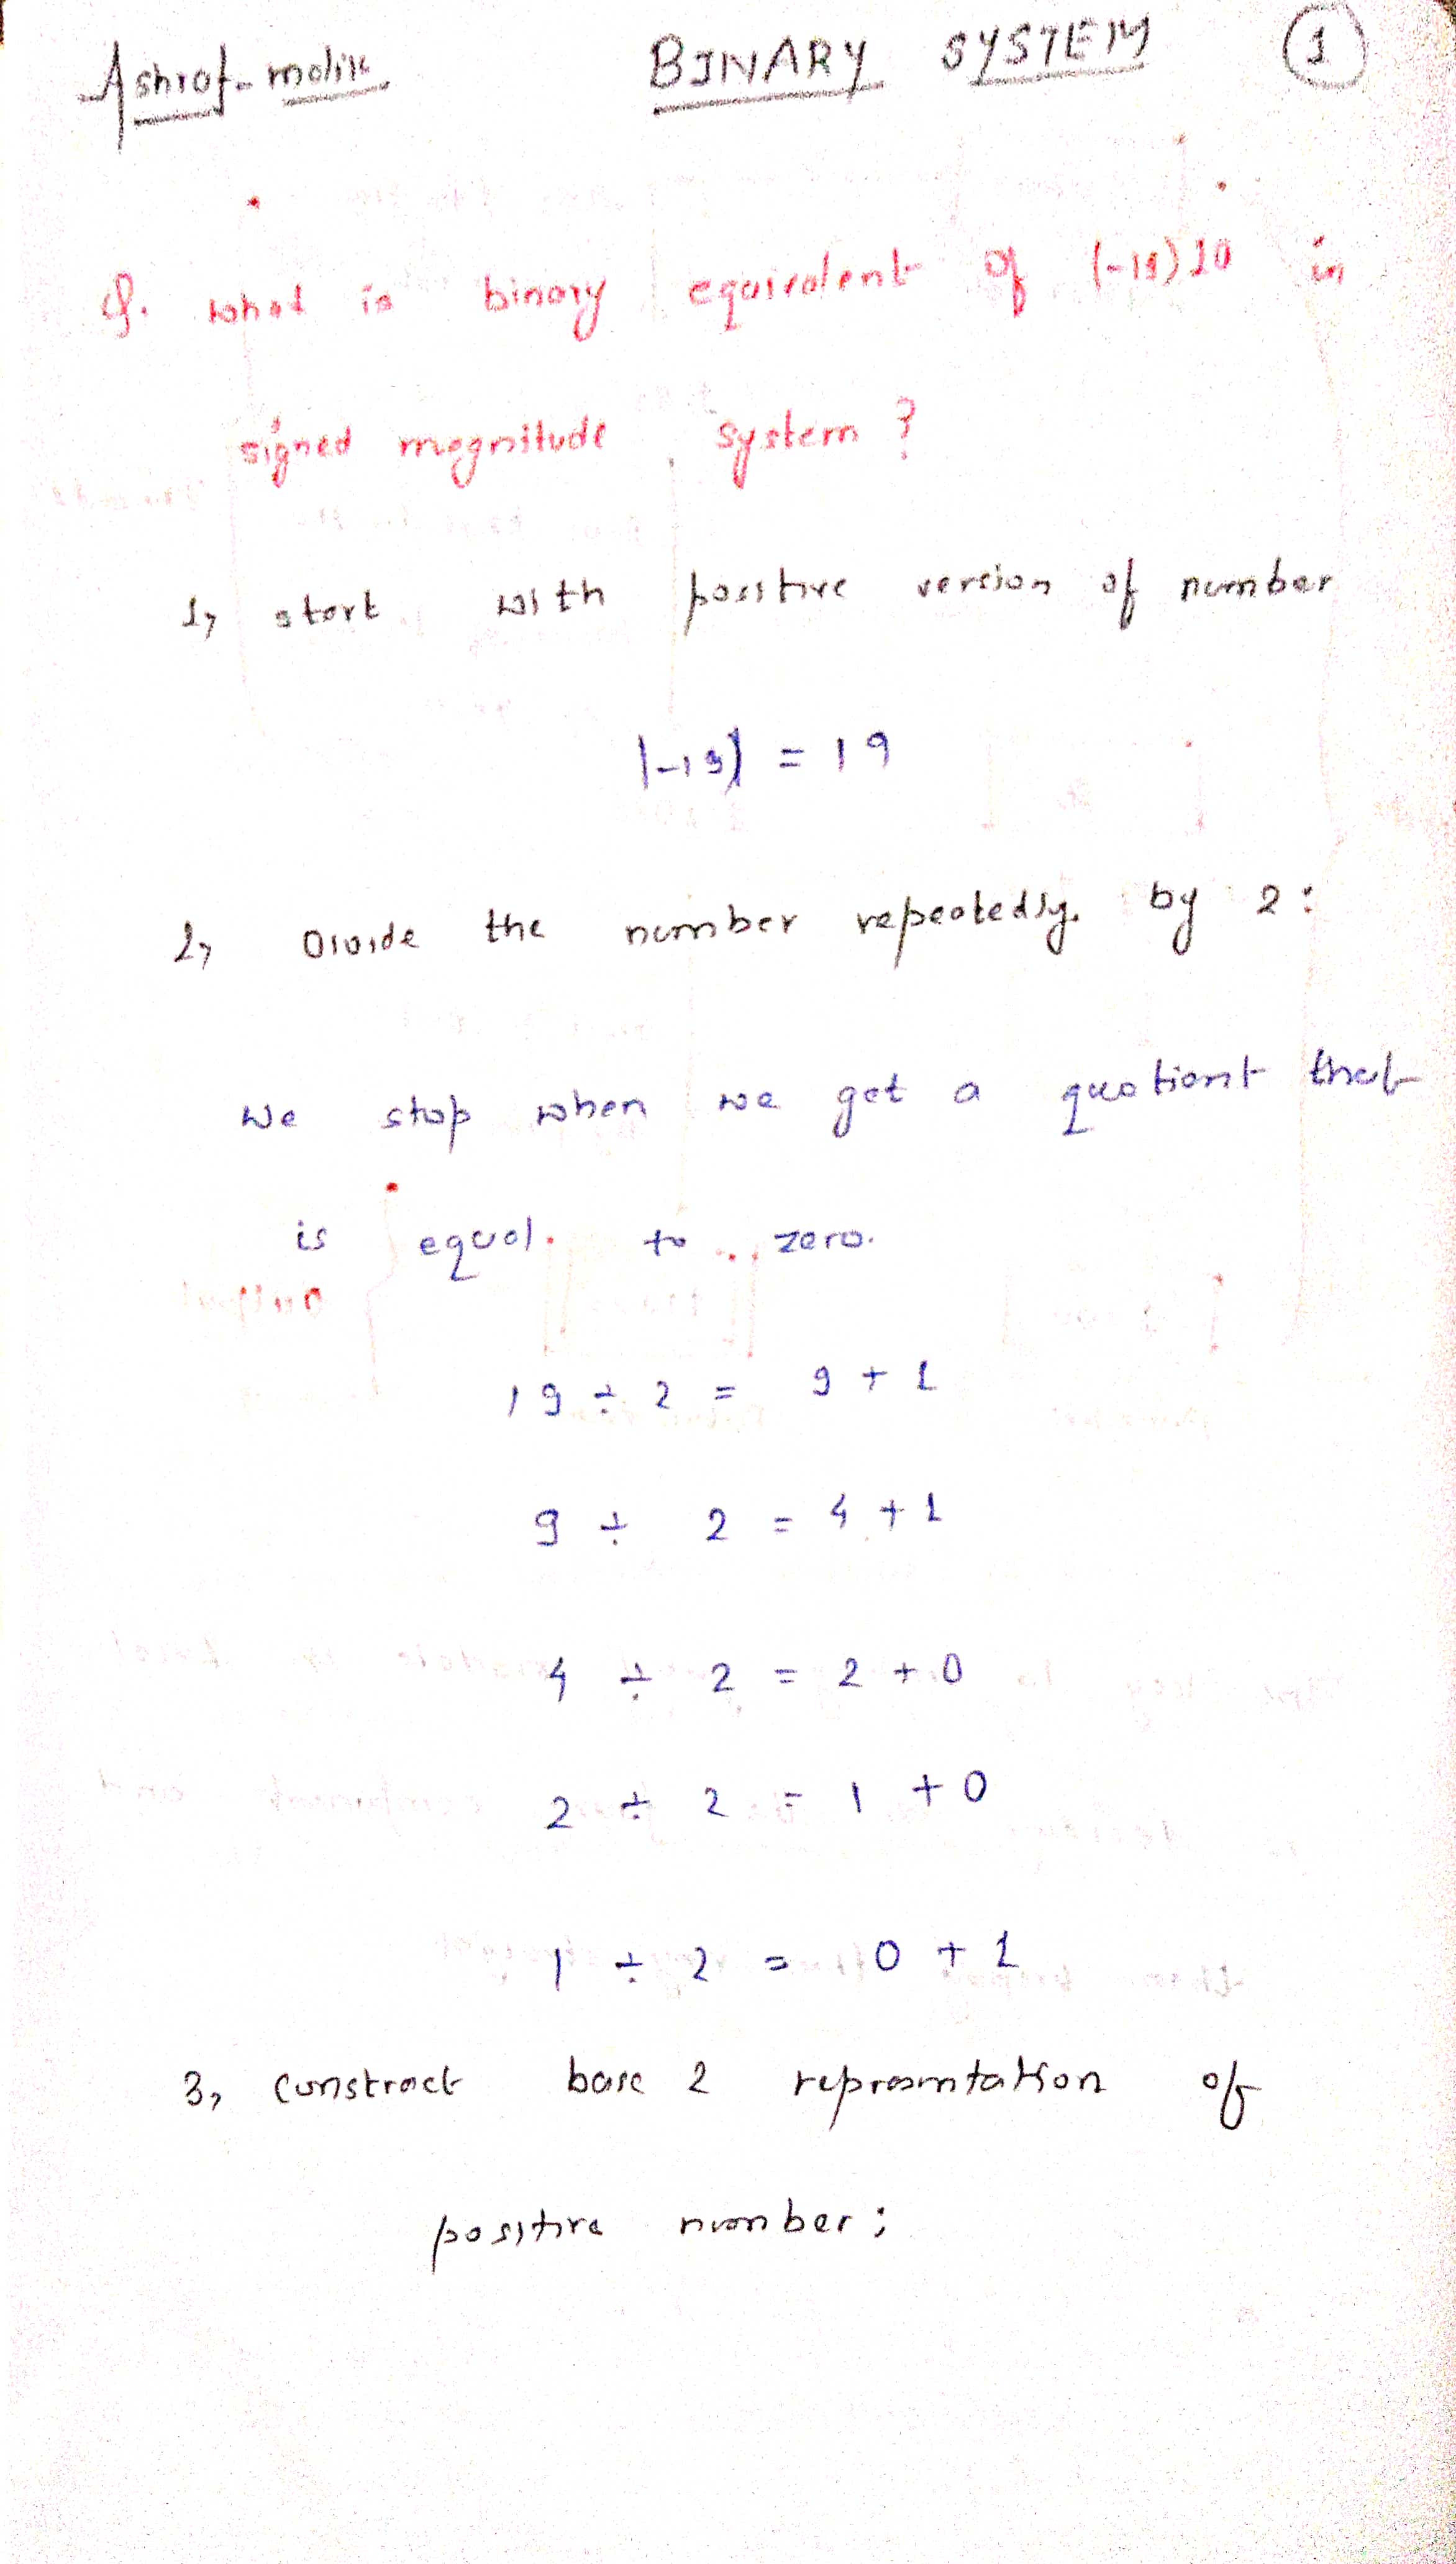 Ashraf-malik BINARY SYSTEM 1
Q. what is binary equivalent of (-19)10 in
signed magnitude system ?
1, start with positive version of number
|-19| = 19
2, Divide the number repeatedly. by 2:
we stop when we get a quotient that
is equal. to zero.
19 ÷ 2 = 9 + 1
9 ÷ 2 = 4 + 1
4 ÷ 2 = 2 + 0
2 ÷ 2 = 1 + 0
1 ÷ 2 = 0 + 1
3, construct base 2 representation of
positive number ;